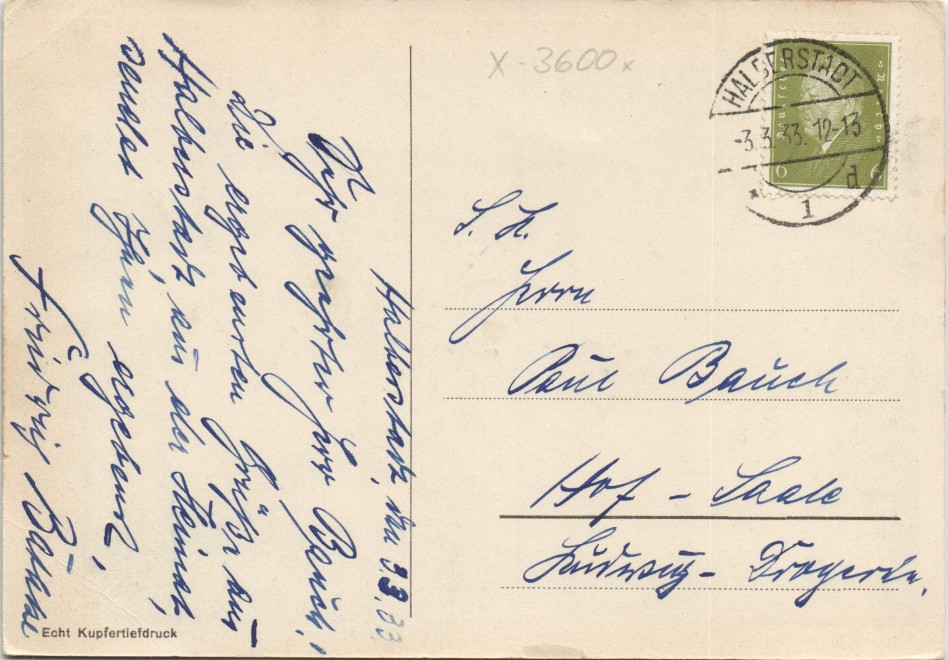 X-3600x
HALBERSTADT
-3.3.33.12-13
1 d
Halberstadt, den 3.3.33.
Sehr geehrter Herr Bauch!
Die ergebensten Grüße aus
Halberstadt aus der Heimat
sendet Ihnen ergebenst,
S. H.
Herrn
Paul Bauch
Hof - Saale
Ludwig - Drogerie.
Echt Kupfertiefdruck